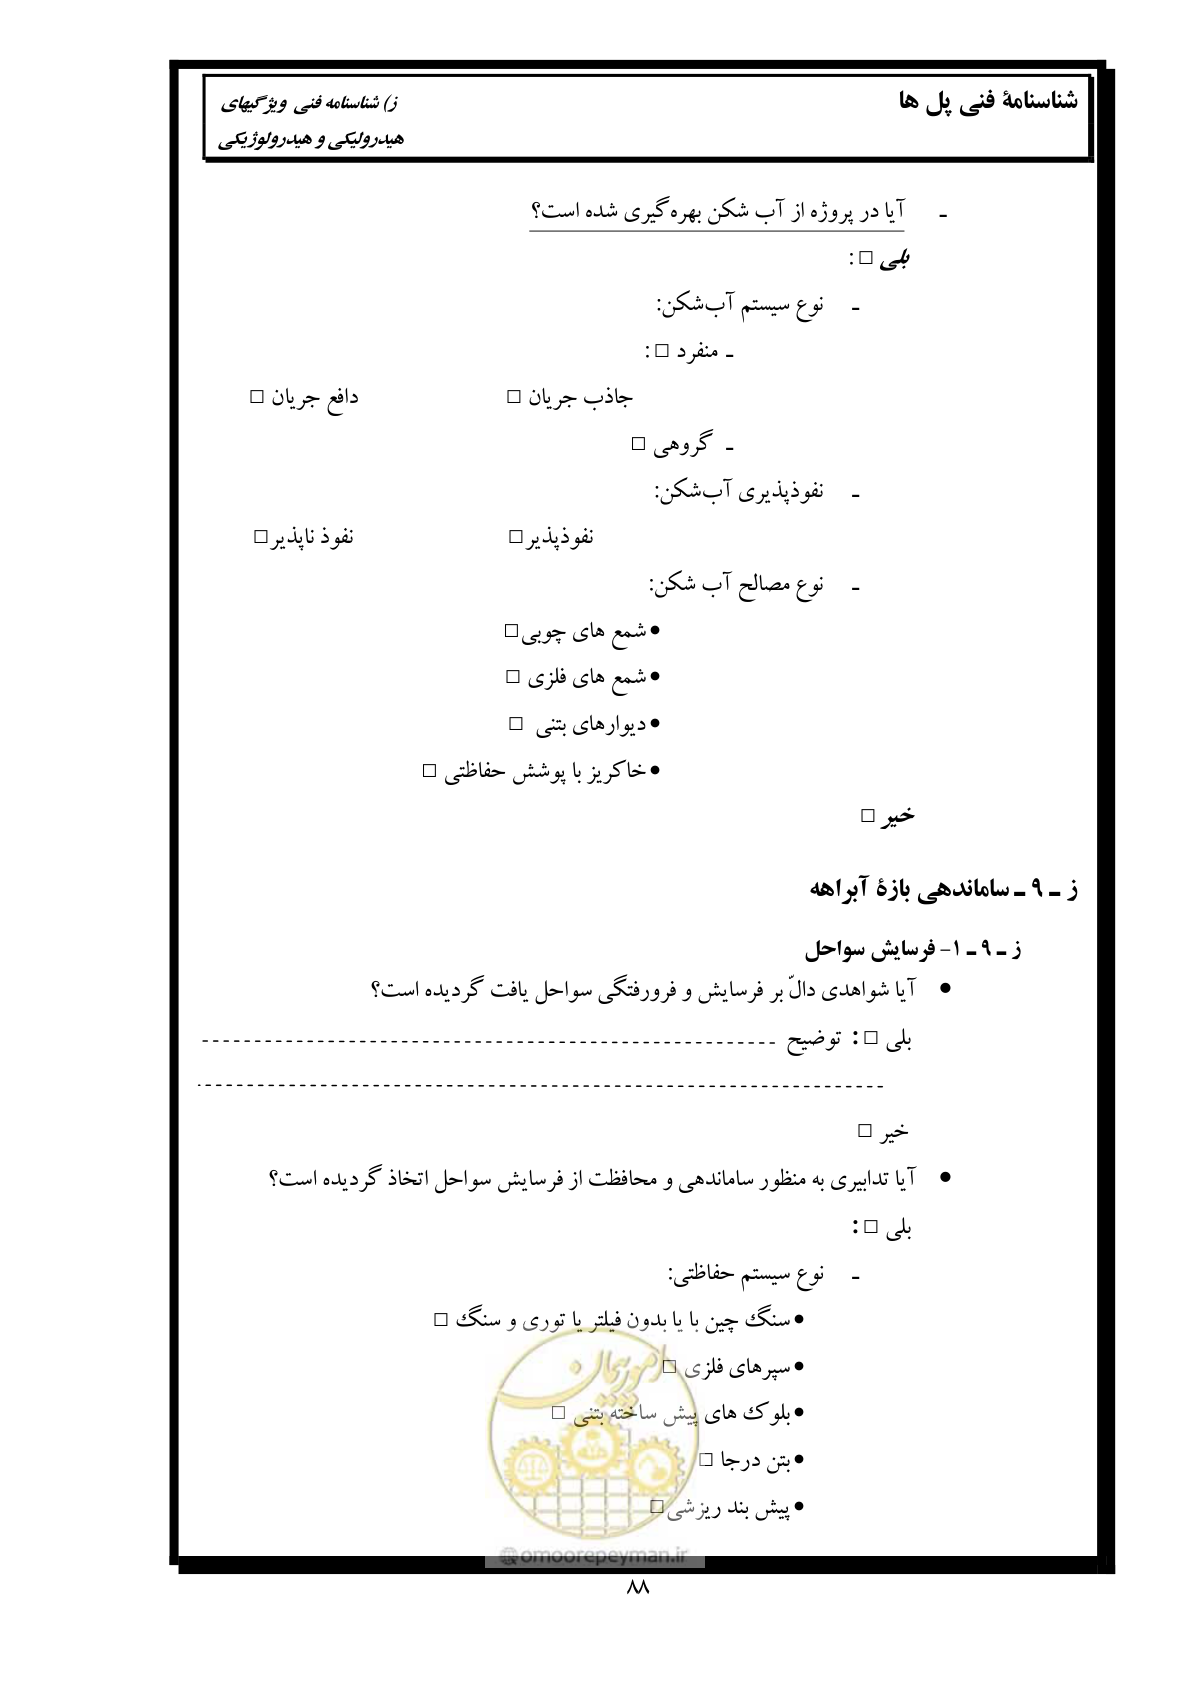 شناسنامهٔ فنی پل ها
ز) شناسنامه فنی ویژگیهای
هیدرولیکی و هیدرولوژیکی
ـ آیا در پروژه از آب شکن بهره‌گیری شده است؟
بلی □ :
ـ نوع سیستم آب‌شکن:
ـ منفرد □ :
جاذب جریان □ دافع جریان □
ـ گروهی □
ـ نفوذپذیری آب‌شکن:
نفوذپذیر□ نفوذ ناپذیر□
ـ نوع مصالح آب شکن:
•شمع های چوبی□
•شمع های فلزی □
•دیوارهای بتنی □
•خاکریز با پوشش حفاظتی □
خیر □
ز ـ ۹ ـ ساماندهی بازهٔ آبراهه
ز ـ ۹ ـ ۱- فرسایش سواحل
• آیا شواهدی دالّ بر فرسایش و فرورفتگی سواحل یافت گردیده است؟
بلی □ : توضیح -------------------------------------------------------
------------------------------------------------------------------
خیر □
• آیا تدابیری به منظور ساماندهی و محافظت از فرسایش سواحل اتخاذ گردیده است؟
بلی □ :
ـ نوع سیستم حفاظتی:
•سنگ چین با یا بدون فیلتر یا توری و سنگ □
•سپرهای فلزی □
•بلوک های پیش ساخته بتنی □
•بتن درجا □
•پیش بند ریزشی□
امور پیمان
@omoorepeyman.ir
۸۸